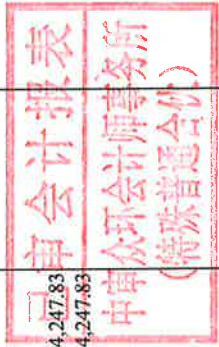 审会计报表
中审众环会计师事务所
(特殊普通合伙)
4,247.83
4,247.83